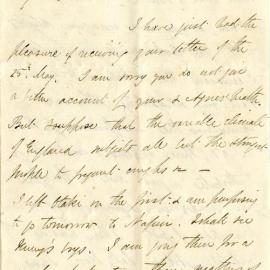 I have just had the
pleasure of receiving your letter of the
25th May. I am sorry you do not give
a better account of yours & Agnes' health.
But suppose that the variable climate
of England subjects all but the strongest
people to frequent coughs &c —
I left Otaki on the first & am proposing
to go tomorrow to Napier. I shall see
Henry's boys. I am going there for a